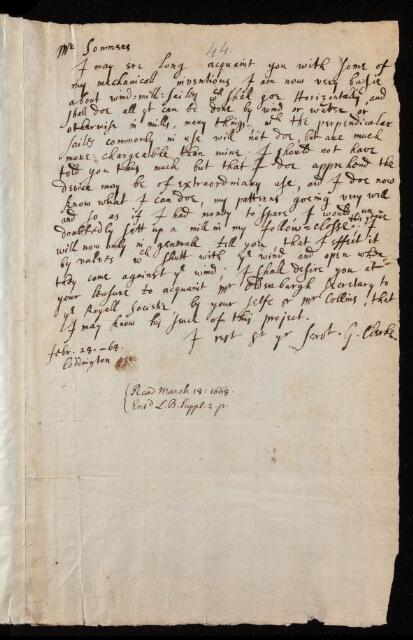 Mr Sommers
44
I may ere long acquaint you with some of
my mechanical inventions I am now very busie
about wind=mill=sailes wch shall goe Horizontaly, and
shall doe all yt can be done by wind or water or
otherwise in mills, many things, wch the perpendicular
sailes commonly in use will not doe, but are much
more chargeable than mine. I should not have
told you thus much but that I doe apprehend the
device may be of extraordinary use, and I doe now
know what I can doe, my patterns going very well
and so as if I had money to spare I would un
doubtedly sett up a mill in my follow=closse this year I
will now only in generall tell you, that I effect it
by valves wch shutt with ye wind and open when
they come against ye wind; I shall desire you at
your leasure to acquaint mr Oldenburgh Secretary to
ye Royall Societie by your selfe or mr Collins, that
I may know his sense of this project.
I rest Sr yr Servt. G. Clerke
febr. 28.-68.
Coddington
Read March 18: 1668.
Ent'd L.B. Suppl. 2. p.